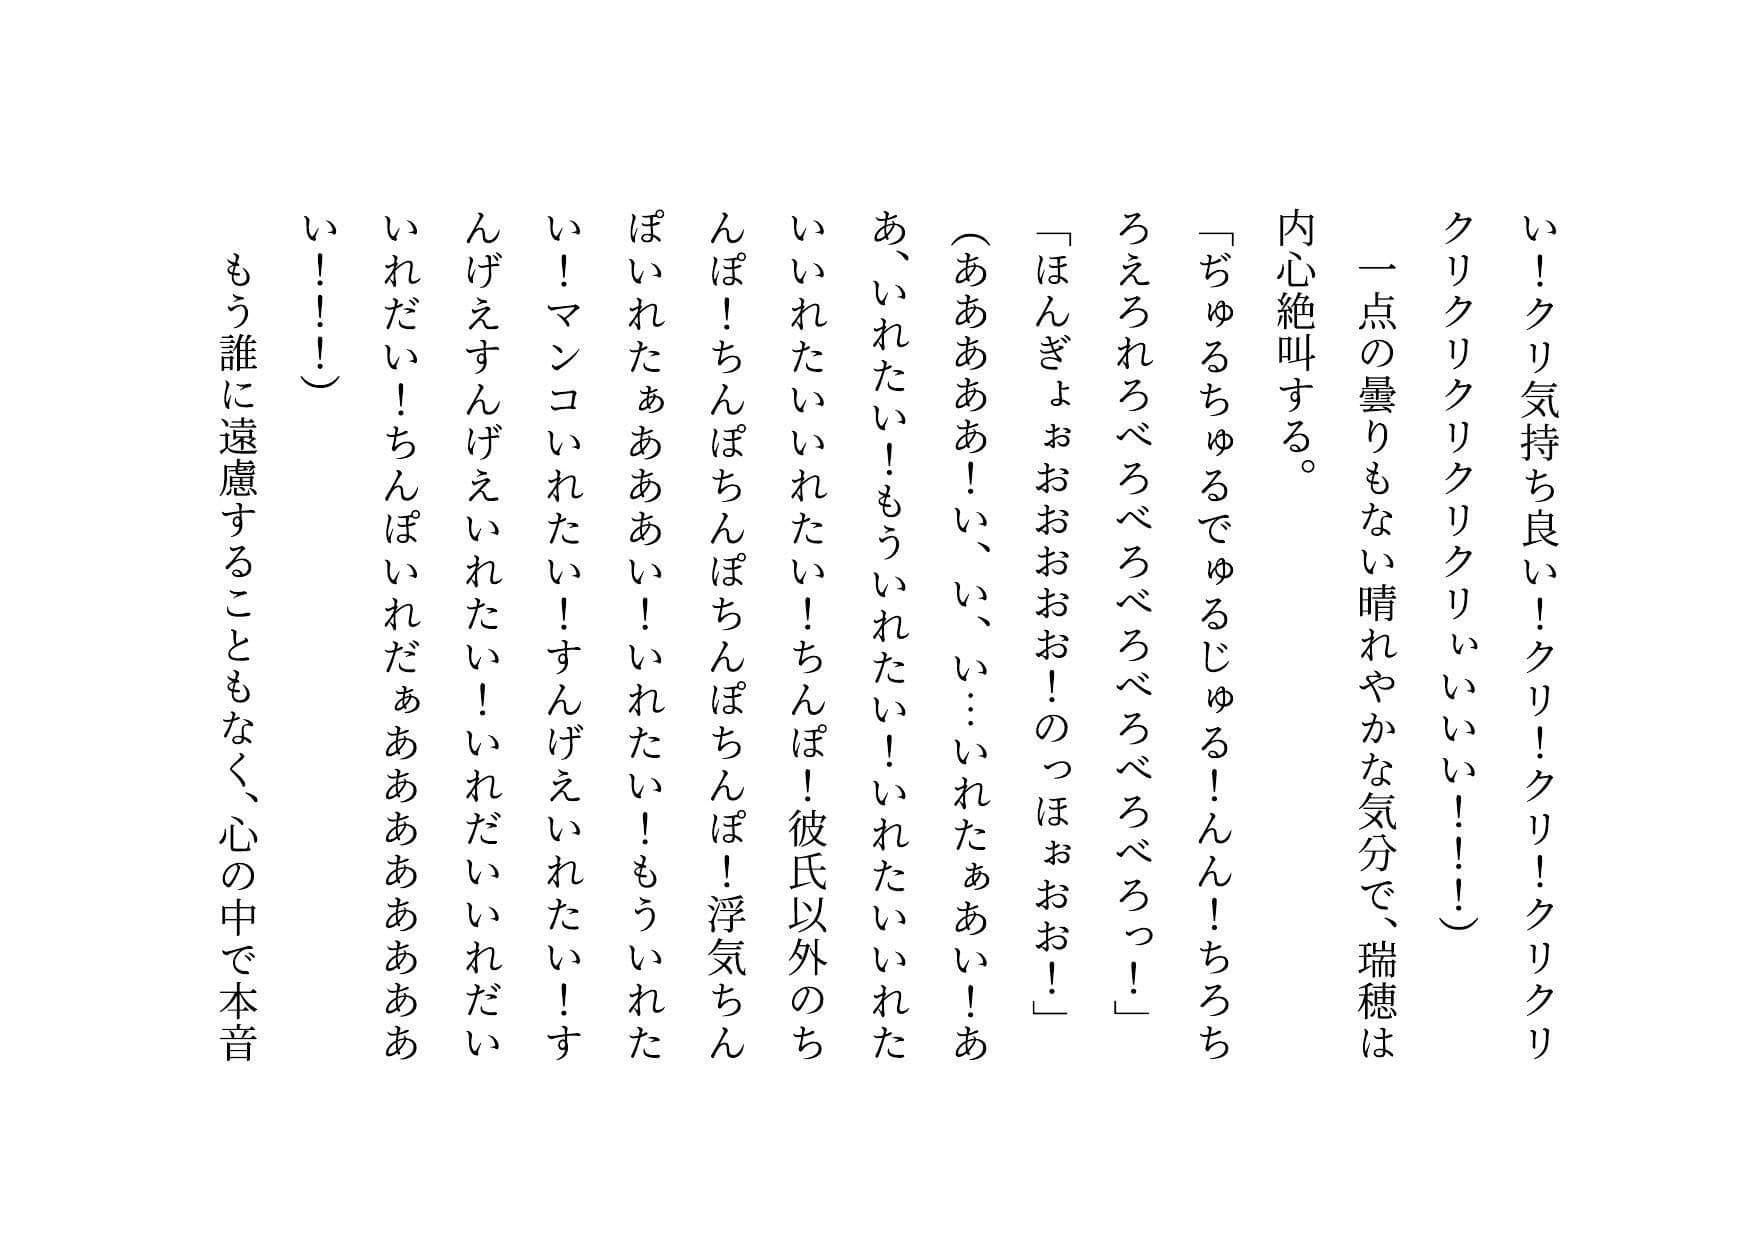 い！クリ気持ち良い！クリ！クリ！クリクリ
クリクリクリクリクリぃいいい！！！）
　一点の曇りもない晴れやかな気分で、瑞穂は
内心絶叫する。
「ぢゅるちゅるでゅるじゅる！んん！ちろち
ろえろれろべろべろべろべろべろべろっ！」
「ほんぎょぉおおおおお！のっほぉおお！」
（あああああ！い、い、い…いれたぁあい！あ
あ、いれたい！もういれたい！いれたいいれた
いいれたいいれたい！ちんぽ！彼氏以外のち
んぽ！ちんぽちんぽちんぽちんぽ！浮気ちん
ぽいれたぁあああい！いれたい！もういれた
い！マンコいれたい！すんげえいれたい！す
んげえすんげえいれたい！いれだいいれだい
いれだい！ちんぽいれだぁああああああああ
い！！！）
　もう誰に遠慮することもなく、心の中で本音